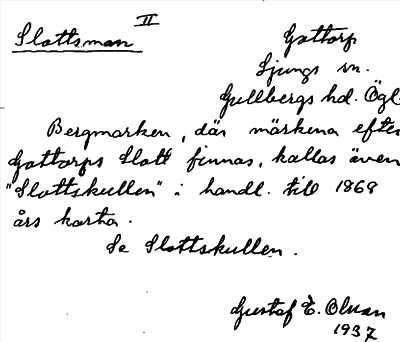 Slottsman II
Gottorp
Ljungs sn.
Gullbergs hd. Ögl.
Bergmarken, där märkena efter
Gottorps Slott finnas, kallas även
"Slottskullen" i handl. till 1868
års karta.
Se Slottskullen.
Gustaf E. Olsson
1937